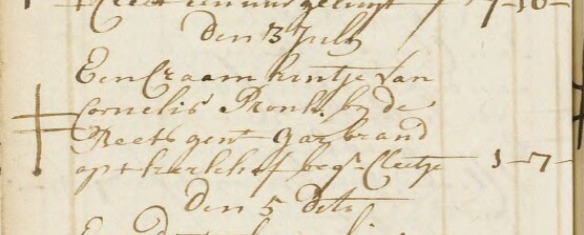 Cleet een uur geluyt 7-10-
Den 3 July
Een Craam kintje van
Cornelis Pronk by de
Beets gent Garbrand
op t kerkhof begr Cleetje 1-7-
Den 5 Dito